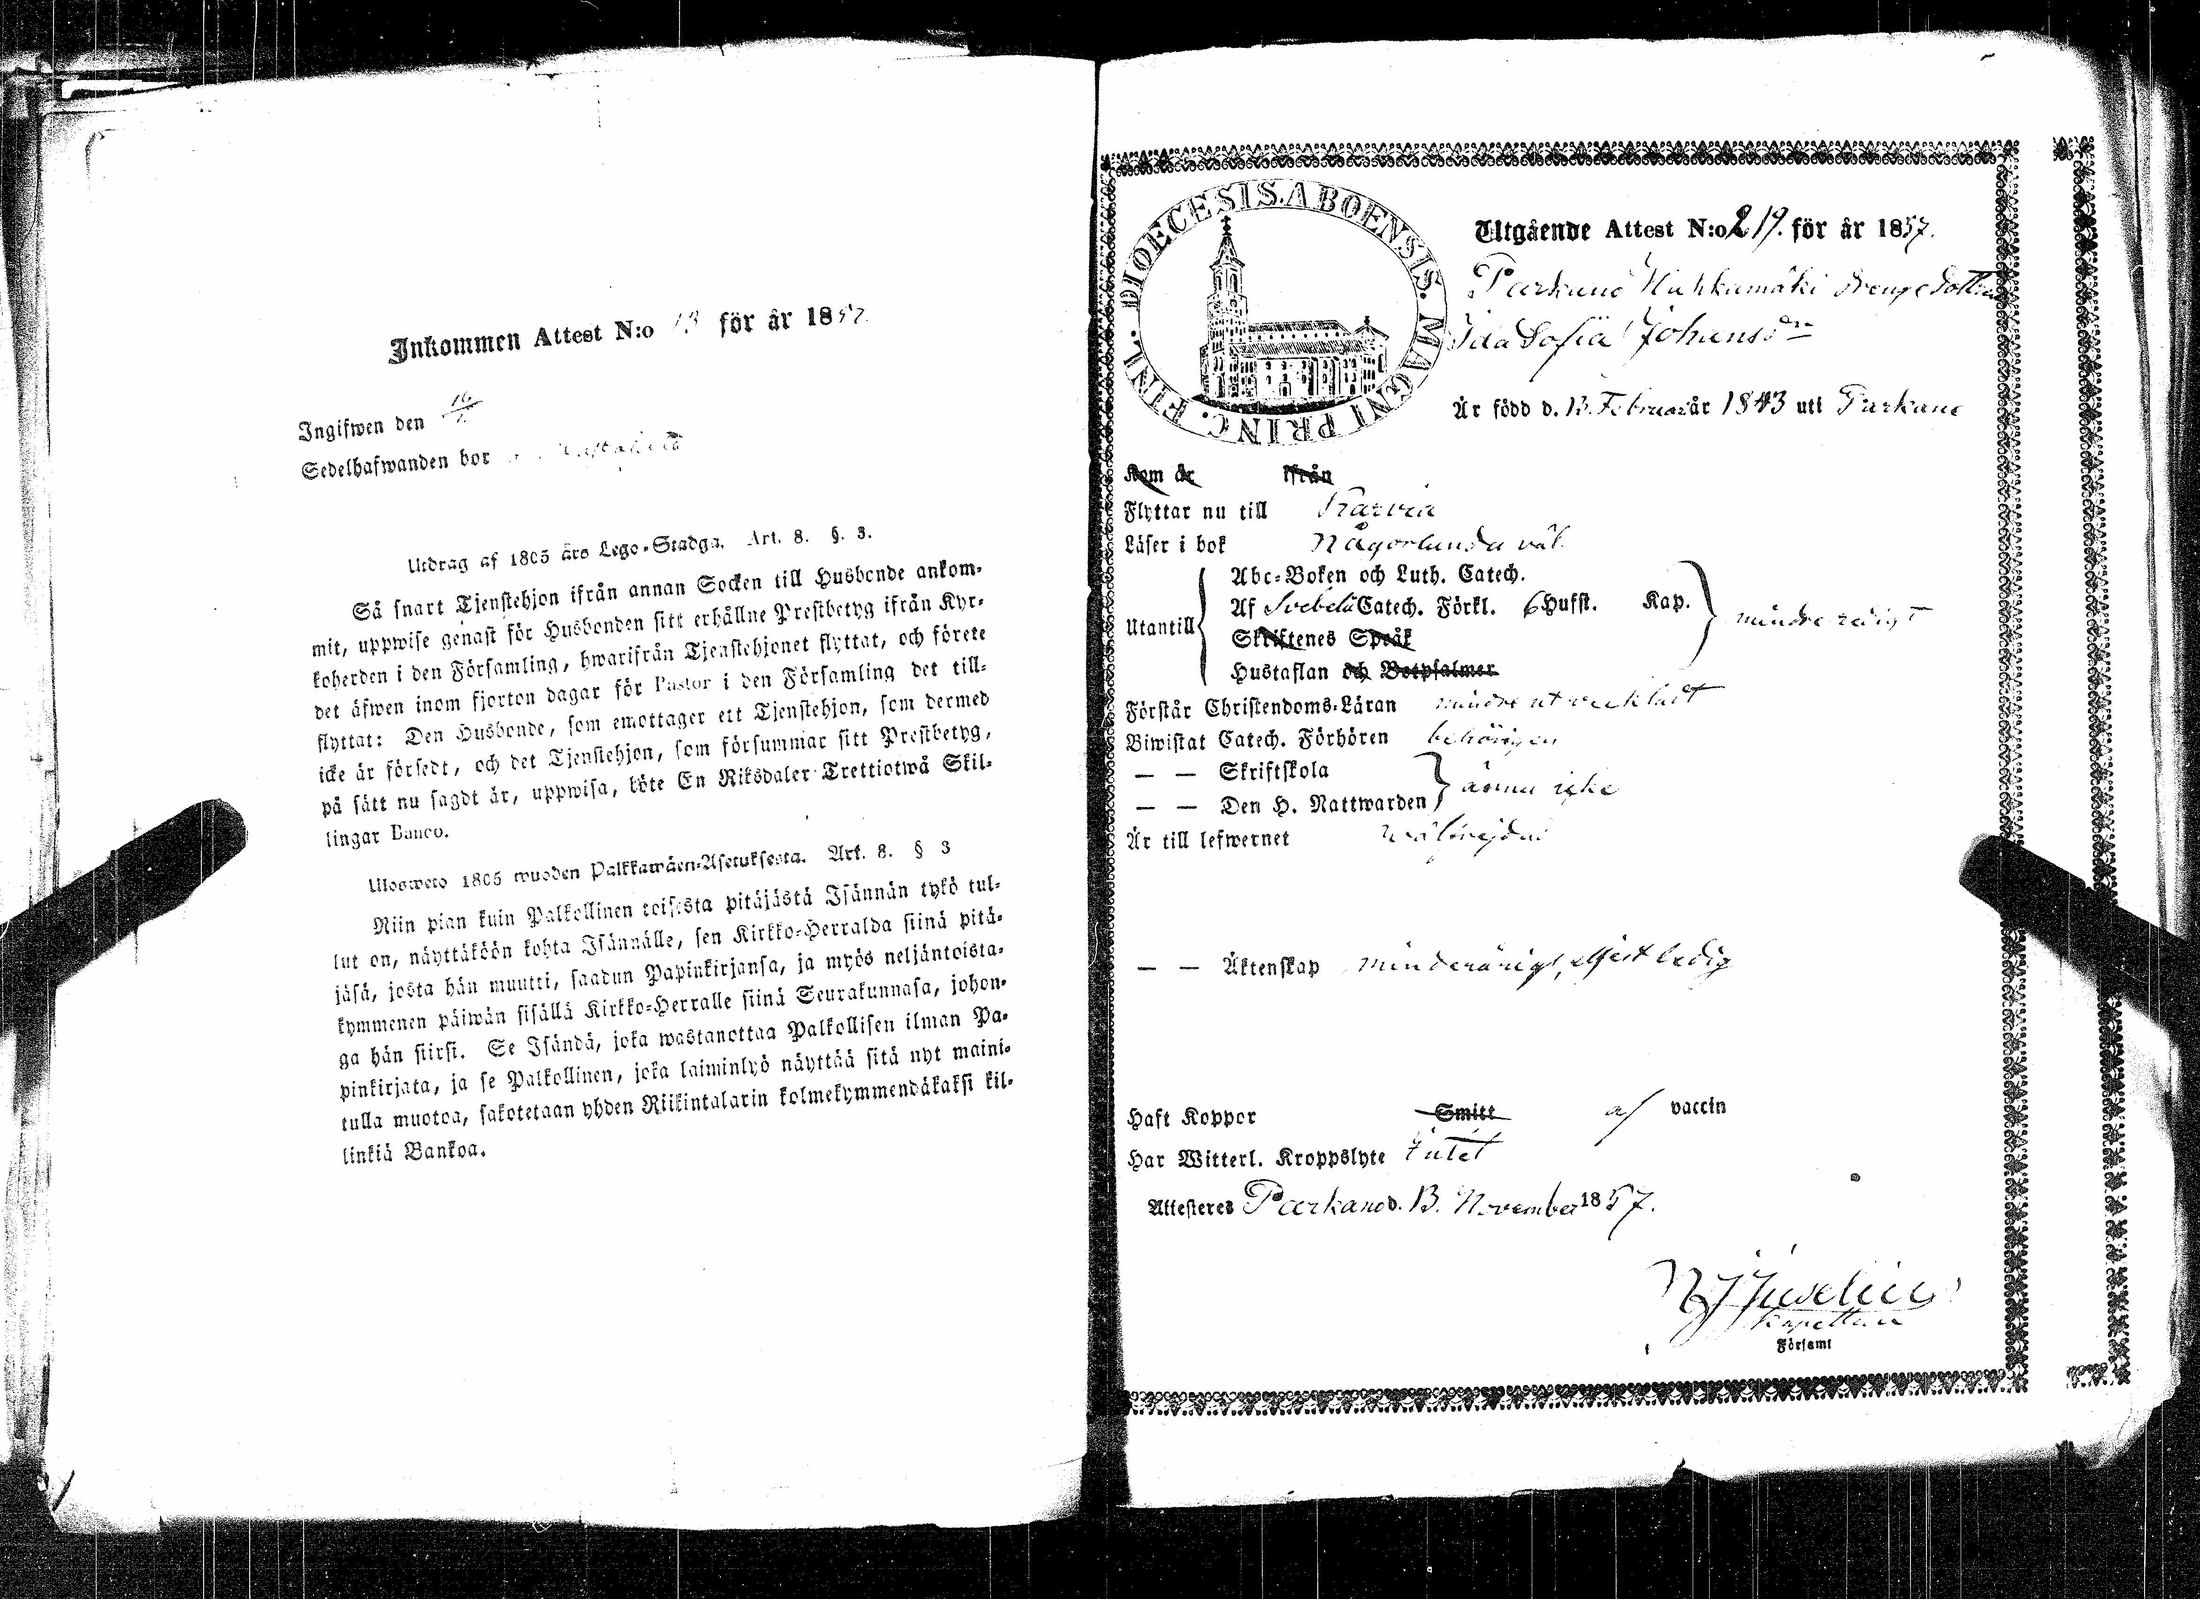 Inkommen Attest N:o 13 för år 1857.
Ingifwen den
Sedelhafwanden bor
Utdrag af 1805 års Lego-Stadga. Art. 8. §. 3.
Så snart Tjenstehjon ifrån annan Socken till Husbonde ankom-
mit, uppwise genast för Husbonden sitt erhållne Prestbetyg ifrån Kyr-
koherden i den Församling, hwarifrån Tjenstehjonet flyttat, och förete
det äfwen inom fjorton dagar för Pastor i den Församling det till-
flyttat: Den Husbonde, som emottager ett Tjenstehjon, som dermed
icke är försedt, och det Tjenstehjon, som försummar sitt Prestbetyg,
på sätt nu sagdt är, uppwisa, böte En Riksdaler Trettiotwå Skil-
lingar Banco.
Ulosweto 1805 wuoden Palkkawäen-Asetuksesta. Art. 8. § 3
Niin pian kuin Palkollinen toisesta pitäjästä Isännän tykö tul-
lut on, näyttäköön kohta Isännälle, sen Kirkko-Herralda siinä pitä-
jäsä, josta hän muutti, saadun Papinkirjansa, ja myös neljäntoista-
kymmenen päiwän sisällä Kirkko-Herralle siinä Seurakunnasa, johon-
ga hän siirsi. Se Isändä, joka wastanottaa Palkollisen ilman Pa-
pinkirjata, ja se Palkollinen, joka laiminlyö näyttää sitä nyt maini-
tulla muotoa, sakotetaan yhden Riikintalarin kolmekymmendäkaksi kil-
linkiä Bankoa.
DIOECESIS. ABOENSIS. MAGNI PRINC. FINL.
Utgående Attest N:o 219. för år 1857.
Parkano Huhkamäki drenge dottren
Ida Sofia Johansdr
Är född d. 13. Februar år 1843 uti Parkano
Kom år ifrån
Flyttar nu till Karvia
Läser i bok Någorlunda väl.
Utantill
Abc-Boken och Luth. Catech.
Af Svebelii Catech. Förkl. 6 Hufst. Kap.
mindre redigt
Skriftenes Språk
Hustaflan och Botpsalmer
Förstår Christendoms-Läran mindre utveckladt
Biwistat Catech. Förhören behörigen
— — Skriftskola
— — Den H. Nattwarden
ännu icke
Är till lefwernet wälfrejdad
— — Äktenskap minderårigt, eljest ledig
Haft Koppor Smitt af vaccin
Har Witterl. Kroppslyte Intet
Attesteres Parkano d. 13. November 1857.
Juselius
Kapellan
Församl